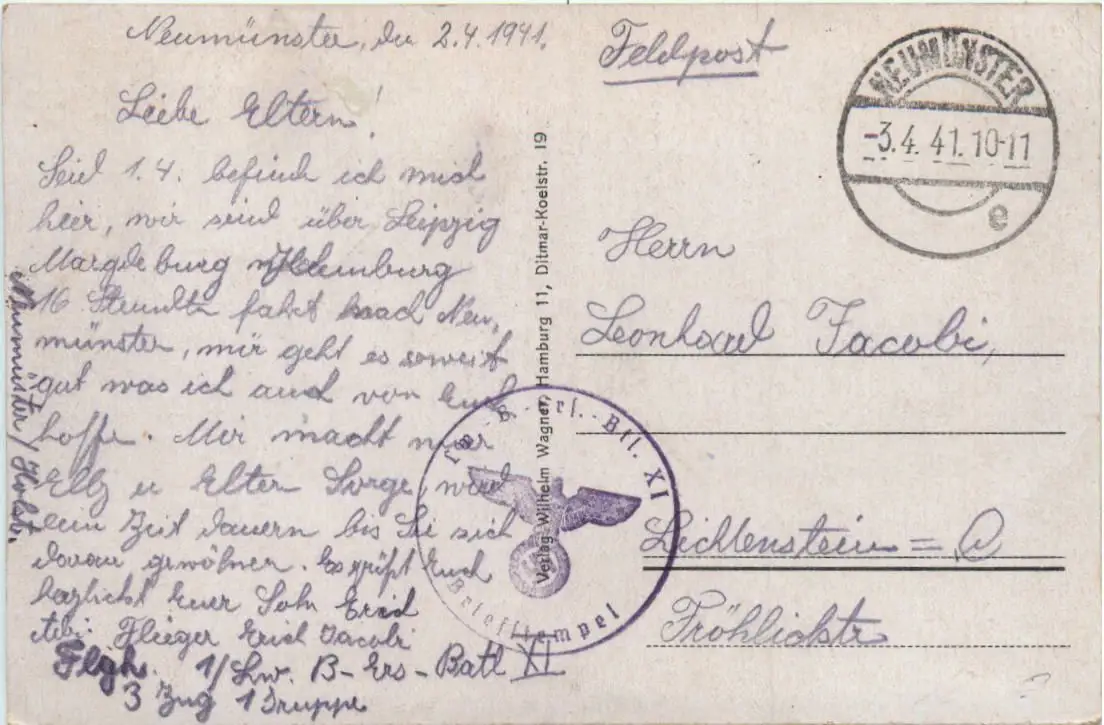 Neumünster, den 2.4.1941.
Liebe Eltern!
Seid 1.4. befinde ich mich
hier, wir seind über Leipzig
Magdeburg Hamburg
16 Stunden fahrt nach Neu,
münster, mir geht es soweit
gut was ich auch von Euch
hoffe. Mir macht nur
Elly u Eltern Sorge, wird
ein Zeit dauern bis Sie sich
daran gewöhnen. Es grüßt Euch
herzlicht Euer Sohn Erich
Flieger Erich Jacobi
Flgh. 1/Lw. B-Ers-Batl XI
3 Zug 1 Gruppe
Neumünster/Holst.
Verlag Wilhelm Wagner, Hamburg 11, Ditmar-Koelstr. 19
Feldpost
NEUMÜNSTER
-3.4.41.10-11
e
Herrn
Leonhard Jacobi,
Lichtenstein = C
Fröhlichstr
Lw.-B-Ers.-Btl. XI
Briefstempel